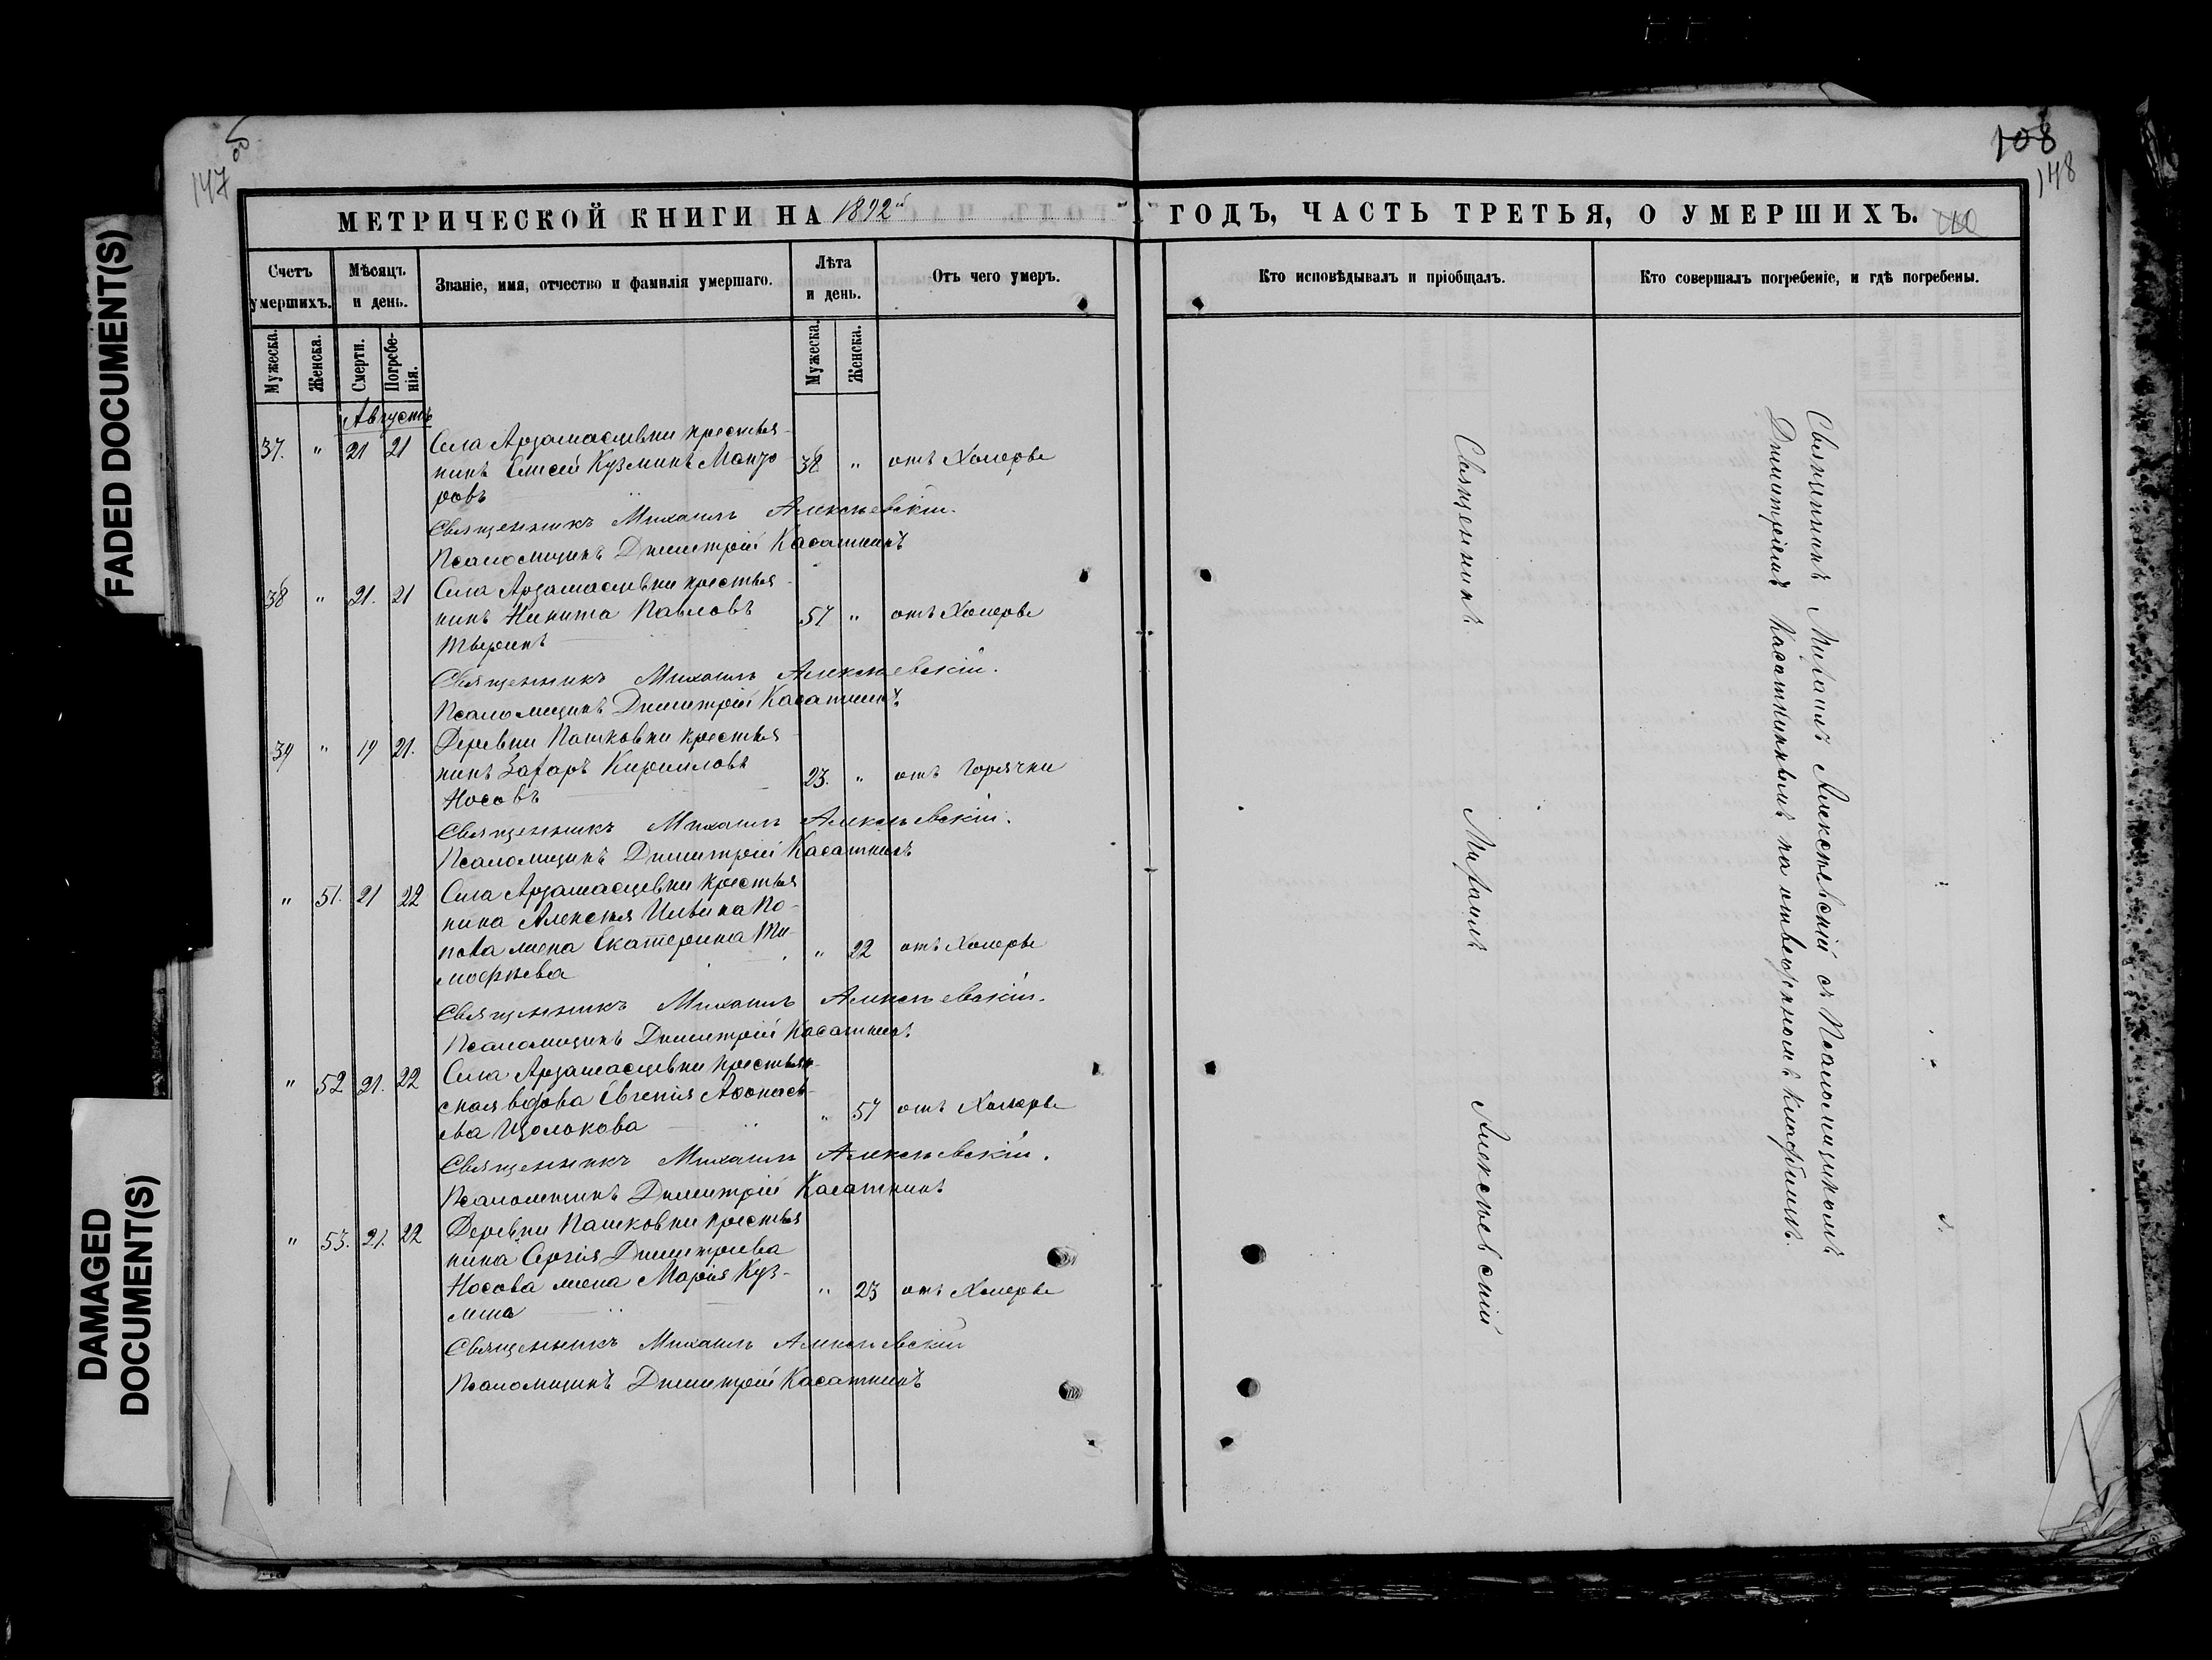 FADED DOCUMENT(S)
DAMAGED
DOCUMENT(S)
147 об
108
148
МЕТРИЧЕСКОЙ КНИГИ НА 1892й ГОДЪ, ЧАСТЬ ТРЕТЬЯ, О УМЕРШИХЪ.
Счетъ умершихъ.
Мѣсяцъ и день.
Званіе, имя, отчество и фамилія умершаго.
Лѣта и день.
Отъ чего умеръ.
Кто исповѣдывалъ и пріобщалъ.
Кто совершалъ погребеніе, и гдѣ погребены.
Мужеска.
Женска.
Смерти.
Погребе-
нія.
Мужеска.
Женска.
Августъ
37. " 21 21 Села Арзамасцевки крестья-
нинъ Елисей Кузминъ Манзо 38 " отъ Холеры
ровъ
Священникъ Михаилъ Алексѣевскій.
Псаломщикъ Димитрій Касаткинъ
38 " 21. 21 Села Арзамасцевки крестья-
нинъ Никита Павловъ 57 " отъ Холеры
Тыринъ
Священникъ Михаилъ Алексѣевскій.
Псаломщикъ Димитрій Касаткинъ
39 " 19 21. Деревни Пашковки крестья
нинъ Захаръ Кирилловъ 23. " отъ горячки
Носовъ
Священникъ Михаилъ Алексѣевскій.
Псаломщикъ Димитрій Касаткинъ
" 51. 21 22 Села Арзамасцевки крестья
нина Алексѣя Ильина По-
пова жена Екатерина Ти- " 22 отъ Холеры
мофѣева
Священникъ Михаилъ Алексѣевскій.
Псаломщикъ Димитрій Касаткинъ
" 52 21. 22 Села Арзамасцевки крестьян-
ская вдова Евгенія Афонась- " 57 отъ Холеры
ева Щолокова
Священникъ Михаилъ Алексѣевскій.
Псаломщикъ Димитрій Касаткинъ
" 53. 21. 22 Деревни Пашковки крестья
нина Сергія Димитріева
Носова жена Марія Куз- " 23 отъ Холеры
мина
Священникъ Михаилъ Алексѣевскій
Псаломщикъ Димитрій Касаткинъ
Священникъ Михаилъ Алексѣевскій
Священникъ Михаилъ Алексѣевскій съ Псаломщикомъ
Димитріемъ Касаткинымъ на отведенномъ кладбищѣ.